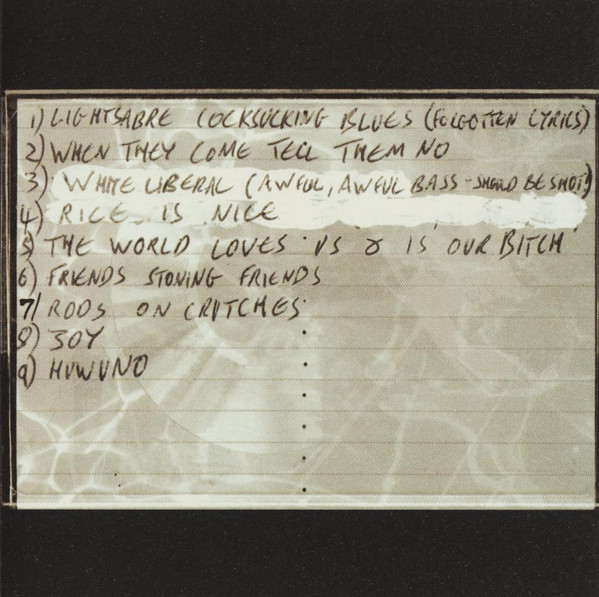 1) LIGHTSABRE COCKSUCKING BLUES (FORGOTTEN LYRICS)
2) WHEN THEY COME TELL THEM NO
3) WHITE LIBERAL (AWFUL, AWFUL BASS - SHOULD BE SHOT!)
4) RICE IS NICE
5) THE WORLD LOVES US & IS OUR BITCH
6) FRIENDS STONING FRIENDS
7) RODS ON CRUTCHES
8) JOY
9) HUWUNO